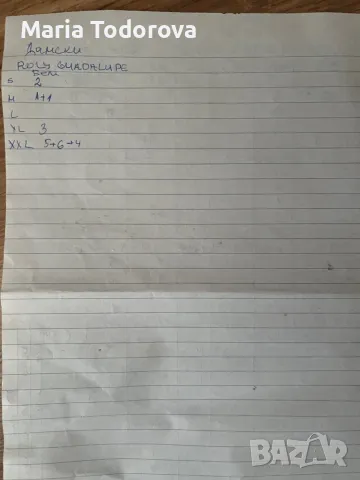 Maria Todorova
Дамски
ROLY GUADALUPE
бели
S 2
M 1+1
L
XL 3
XXL 5+6+4
BAZAR